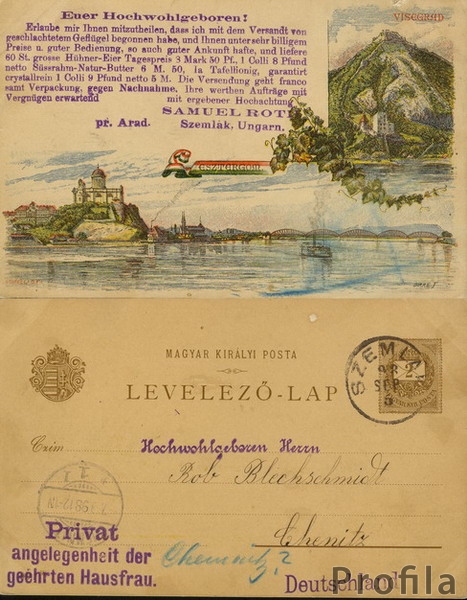 Euer Hochwohlgeboren!
Erlaube mir Ihnen mitzutheilen, dass ich mit dem Versandt von
geschlachtetem Geflügel begonnen habe, und Ihnen unter sehr billigem
Preise u. guter Bedienung, so auch guter Ankunft hafte, und liefere
60 St. grosse Hühner-Eier Tagespreis 3 Mark 50 Pf., 1 Colli 8 Pfund
netto Süssrahm-Natur-Butter 6 M. 50, la Tafellionig, garantirt
crystallrein 1 Colli 9 Pfund netto 5 M. Die Versendung geht franco
samt Verpackung, gegen Nachnahme. Ihre werthen Aufträge mit
Vergnügen erwartend mit ergebener Hochachtung
SAMUEL ROTH
pr. Arad. Szemlák, Ungarn.
VISEGRÁD
ESZTERGOM
MAGYAR KIRÁLYI POSTA
LEVELEZŐ-LAP
SZEML
98
SEP
5
2
Czim
Hochwohlgeboren Herrn
Rob Blechschmidt
Chenitz
Privat
angelegenheit der
geehrten Hausfrau.
Chemnitz?
Deutschland
Profila